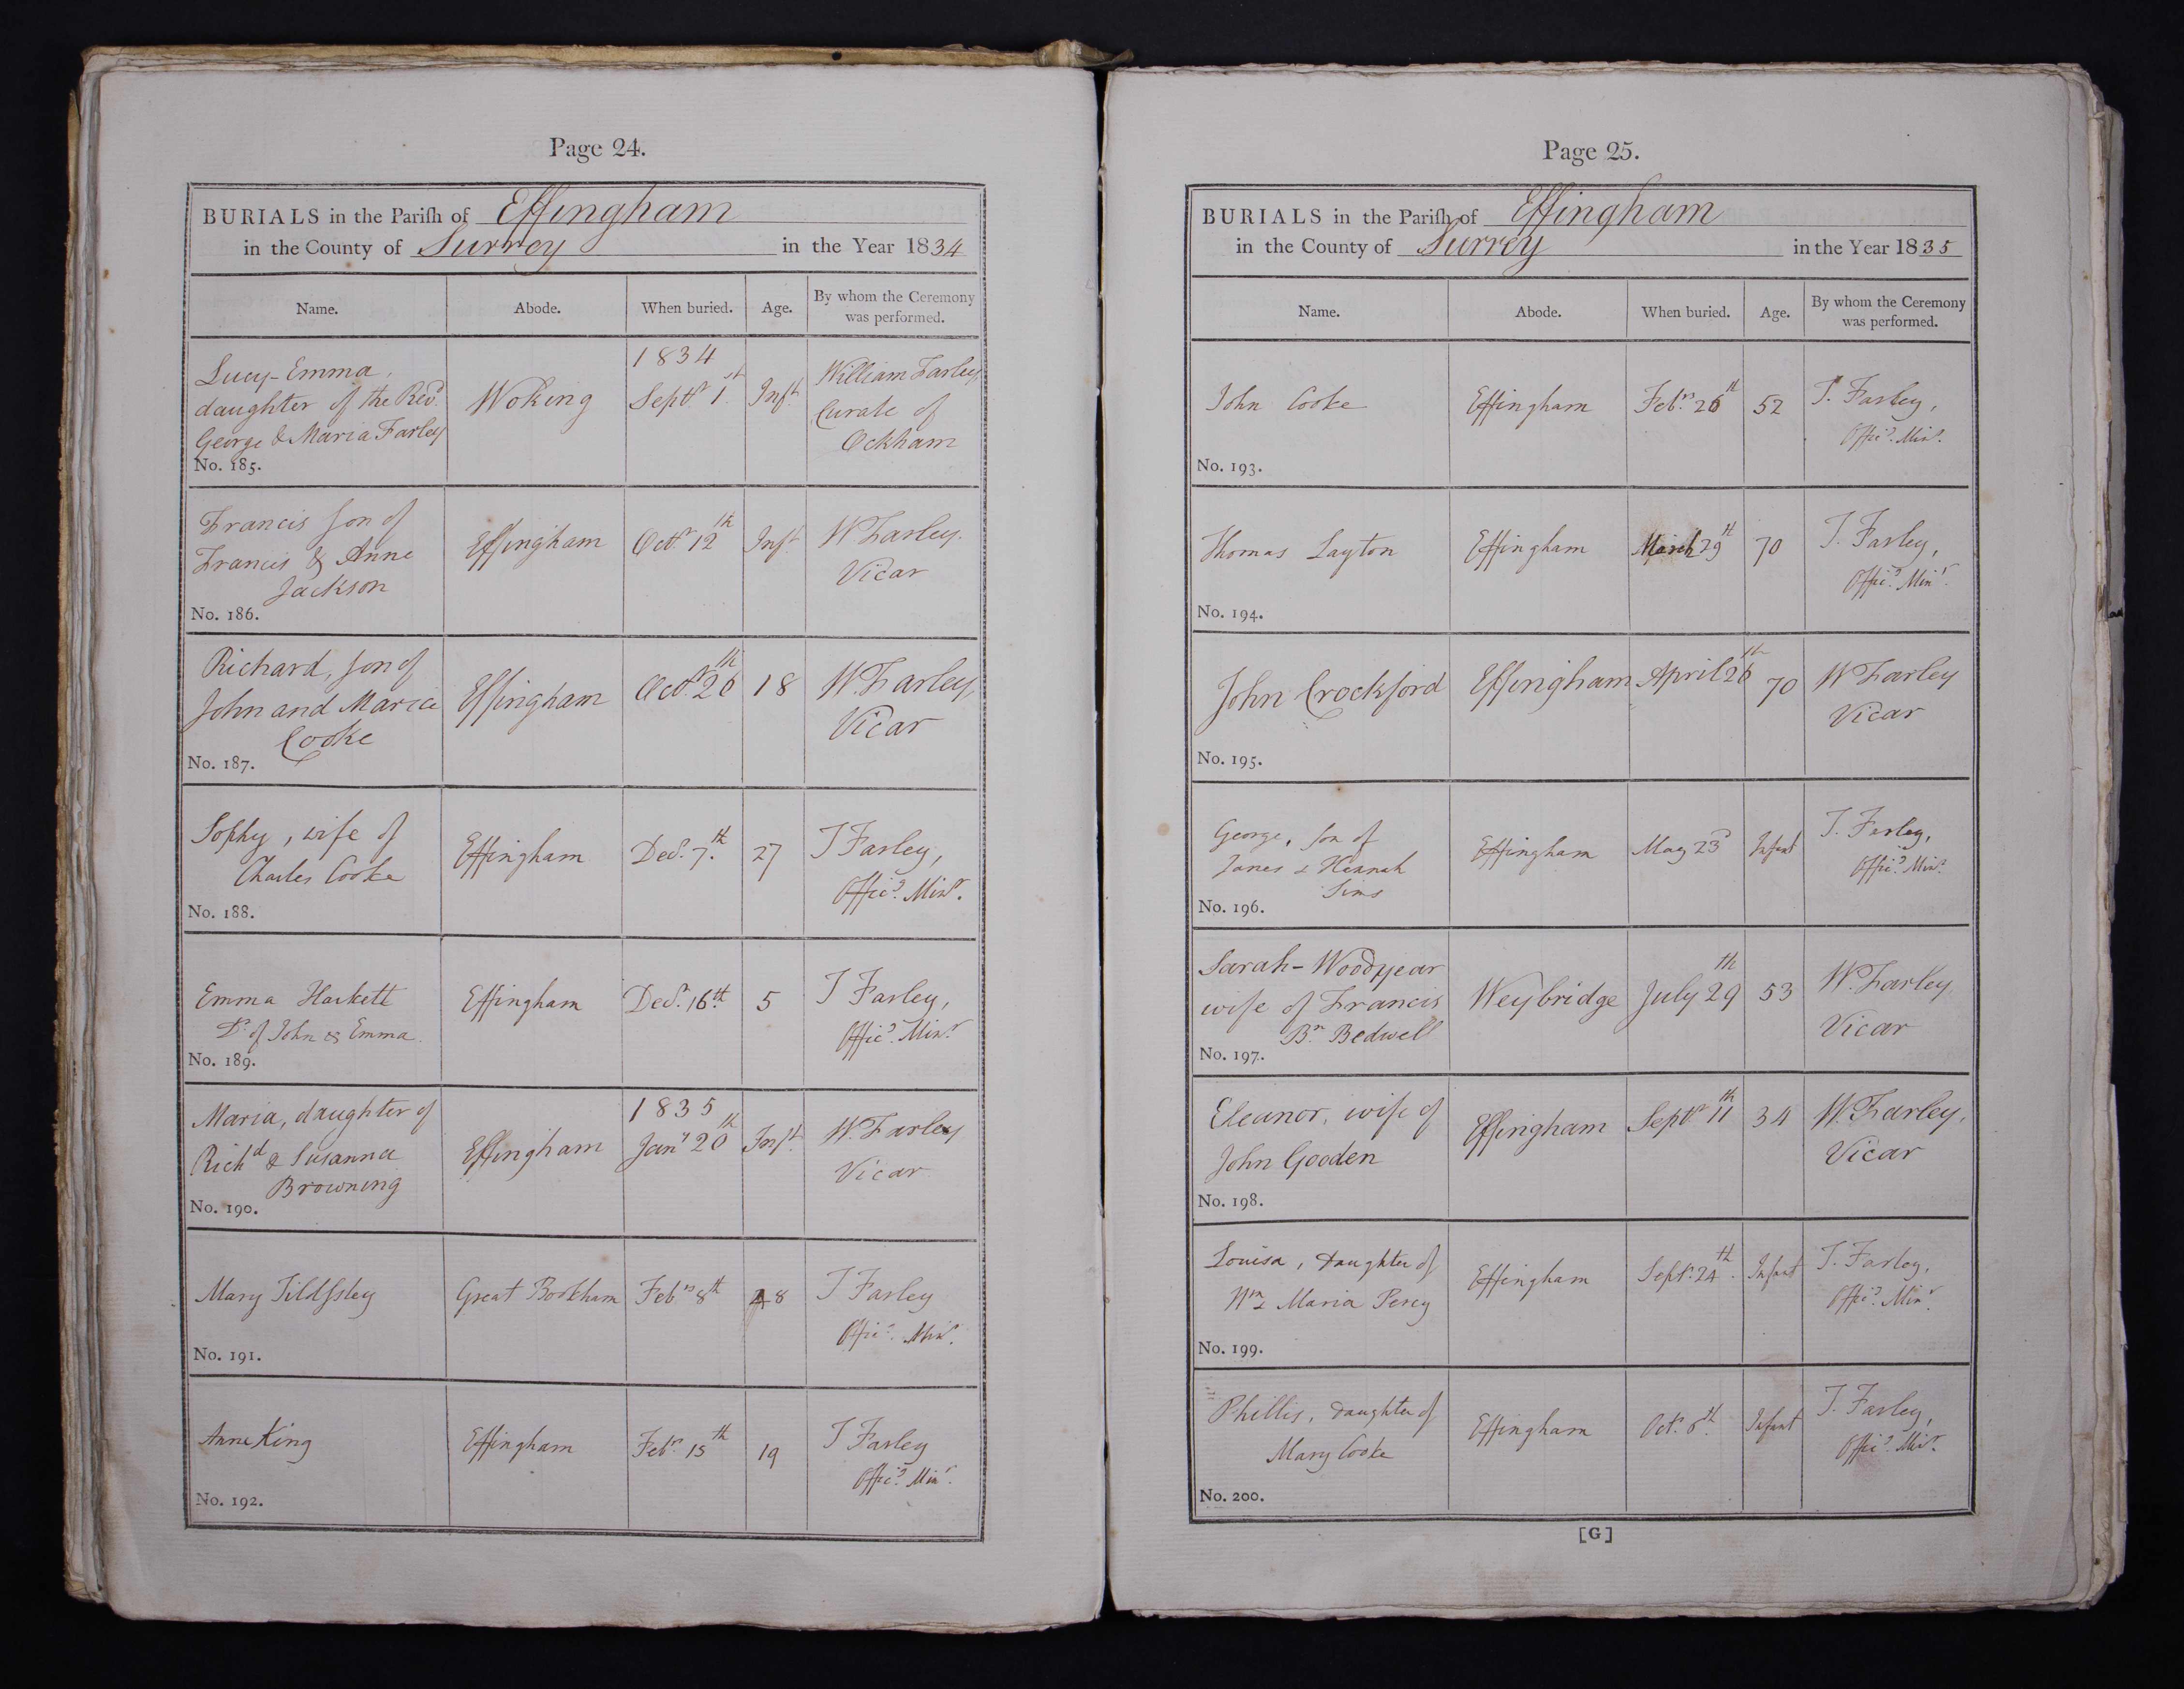 Page 24.
BURIALS in the Parish of Effingham
in the County of Surrey in the Year 1834
Name. Abode. When buried. Age. By whom the Ceremony was performed.
Lucy-Emma, daughter of the Revd. George & Maria Farley Woking 1834 Septr. 1st Inft. William Farley, Curate of Ockham
No. 185.
Francis son of Francis & Anne Jackson Effingham Octr. 12th Inft. W. Farley. Vicar
No. 186.
Richard, son of John and Maria Cooke Effingham Octr. 26th 18 W. Farley, Vicar
No. 187.
Sophy, wife of Charles Cooke Effingham Decr. 7th. 27 T Farley, Offic.g Minr.
No. 188.
Emma Hackett Dr. of John & Emma. Effingham Decr. 16th. 5 T Farley, Offic.g Minr.
No. 189.
Maria, daughter of Richd & Susanna Browning Effingham 1835 Jany 20th Inft. W. Farley Vicar
No. 190.
Mary Tildsley Great Bookham Feby 8th 48 T Farley Offic.g Minr.
No. 191.
Anne King Effingham Feby. 15th 19 T Farley Offic.g Minr.
No. 192.
Page 25.
BURIALS in the Parish of Effingham
in the County of Surrey in the Year 1835
Name. Abode. When buried. Age. By whom the Ceremony was performed.
John Cooke Effingham Feby. 26th 52 T. Farley, Offic.g Minr.
No. 193.
Thomas Layton Effingham March 29th 70 T. Farley, Offic.g Minr.
No. 194.
John Crockford Effingham April 26th 70 W Farley Vicar
No. 195.
George, son of James & Hannah Sims Effingham May 23d Infant T. Farley, Offic.g Minr.
No. 196.
Sarah-Woodyear wife of Francis Br. Bedwell Weybridge July 29th 53 W. Farley Vicar
No. 197.
Eleanor, wife of John Gooden Effingham Septr 11th 34 W. Farley, Vicar
No. 198.
Louisa, daughter of Wm & Maria Percy Effingham Septr. 24th. Infant T. Farley, Offic.g Minr.
No. 199.
Phillis, daughter of Mary Cooke Effingham Octr. 8th. Infant T. Farley, Offic.g Minr.
No. 200.
[G]